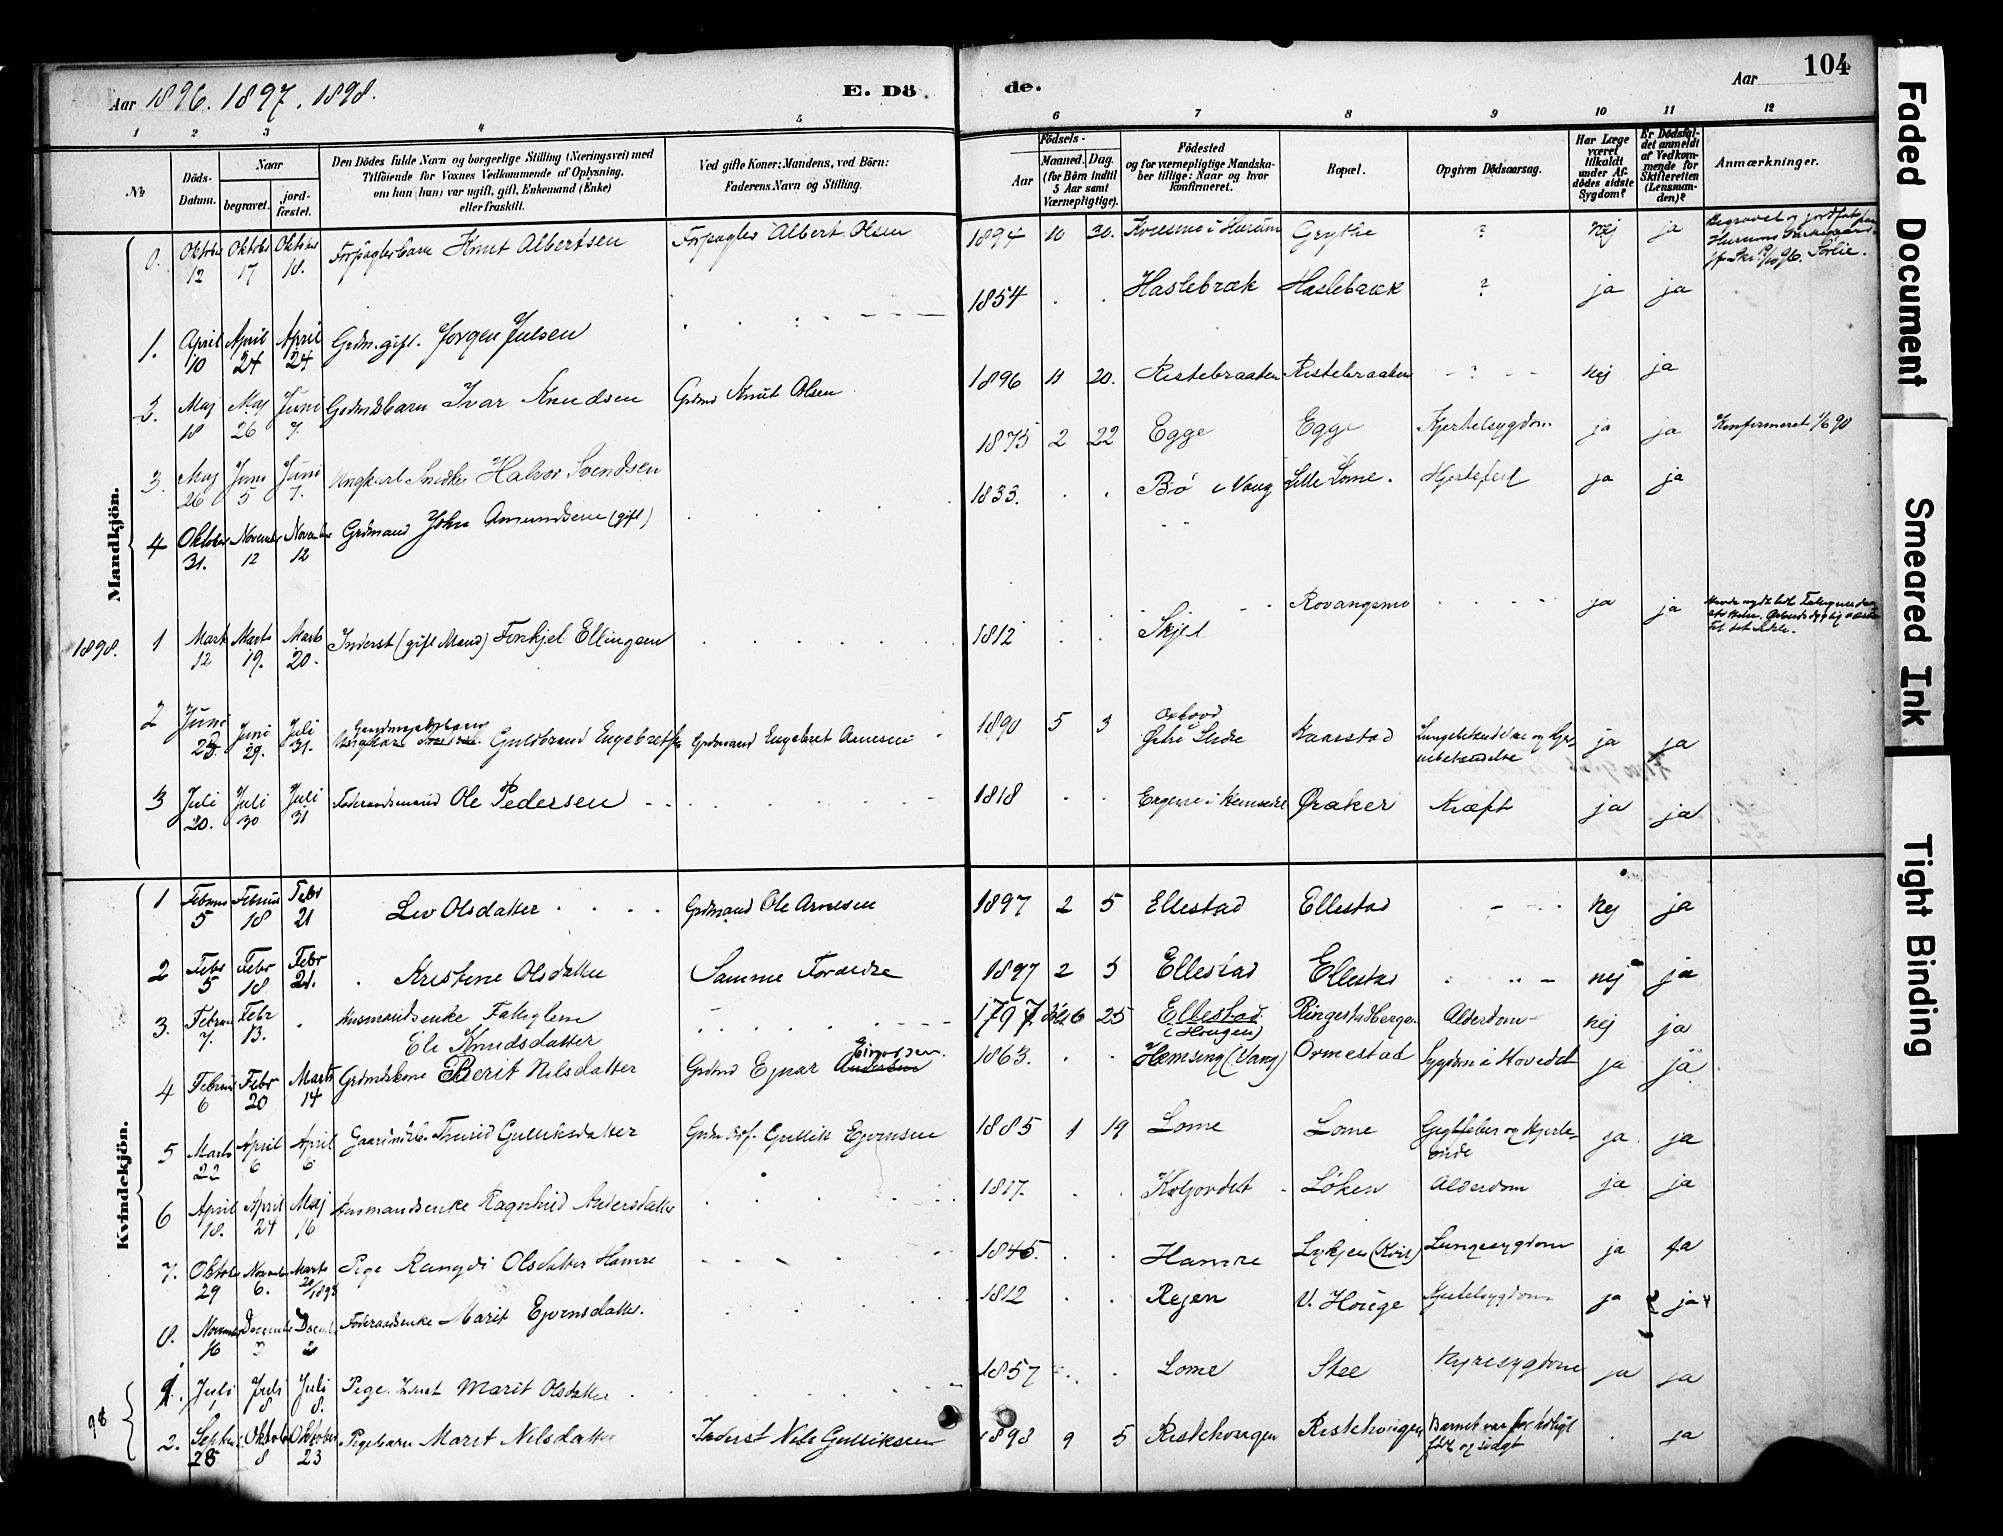 Aar 1896. 1897. 1898. E. Dö de. Aar 104
1 2 3 4 5 6 7 8 9 10 11 12
No
Döds-Datum.
Naar
begravet.
jord-fæstet.
Den Dödes fulde Navn og borgerlige Stilling (Næringsvei) med
Tilföiende for Voxnes Vedkommende af Oplysning,
om han (hun) var ugift, gift, Enkemand (Enke)
eller fraskilt.
Ved gifte Koner: Mandens, ved Börn:
Faderens Navn og Stilling.
Födsels-
Aar
Maaned. Dag.
(for Börn indtil
5 Aar samt
Værnepligtige).
Födested
og for værnepligtige Mandska-
ber tillige: Naar og hvor
konfirmeret.
Bopæl.
Opgiven Dödsaarsag.
Har Læge
været
tilkaldt
under Af-
dödes sidste
Sygdom?
Er Dödsfal-
det anmeldt
af Vedkom-
mende for
Skifteretten
(Lensman-
den)?
Anmærkninger.
Mandkjön.
8. Oktober 12 Oktober 17 Oktober 18. Forpagterbarn Knut Albertsen Forpagter Albert Olsen 1894 10 30. Kvesmo i Hurum Grythe ? nej ja Begravet og jordfæstet paa
Hurums
Sørlie.
1. April 10 April 24 April 24 Grdm. gift. Jørgen Julsen 1854 Haslebræk Haslebræk ? ja ja
2. Maj 18 Maj 26 Juni 7. Grdmdsbarn Ivar Knudsen Grdmd Knut Olsen 1896 11 20. Ristebraaten Ristebraaten - ? - - nej ja
3. Maj 26 Juni 5 Juni 7. Ungkarl Snedker Halvor Svendsen 1875 2 22 Egge Egge Kjertelsygdom ja ja Konfirmeret 1/6 90
4 Oktober 31. November 12 November 12 Grdmand John Amundsen (gift) 1833. Bø i Vang Lille Lome. Hjertefeil ja ja
1898. 1 Mart 12 Marts 19. Marts 20. Inderst (gift Mand) Torkjel Ellingsen 1812 Skjel Rovangsmo ja ja
2 Juni 23. Juni 29. Juli 31. Gaardmandsbarn
Guldbrand Engebretsen Grdmand Engebret Arnesen 1890 5 3 Oxhovd
Østre Slidre Kaarstad Lungebetændelse og Hjer-
nebetændelse ja ja
3 Juli 20. Juli 30 Juli 31 Føderaadsmand Ole Pedersen 1818 i Hemsedal Øraker Kræft ja ja
Kvindekjön.
1 Februar 5 Februar 18 Febr 21 Liv Olsdatter Grdmand Ole Arnesen 1897 2 5 Ellestad Ellestad nej ja
2 Febr 5 Febr 18 Febr 21. Kristine Olsdatter Samme Forældre 1897 2 5 Ellestad Ellestad nej ja
3. Februar 7. Febr 13. Husmandsenke Fattiglem
Eli Knudsdatter 1797. 6 25 Ellestad
(Hougen) Ringestadberge Alderdom nej ja
4 Februar 6 Febr 20 Marts 14 Grdmdskone Berit Nilsdatter Grdmd Ejnar Andersen Einarsen. 1863. Hemsing (Vang) Ormestad Sygdom i Hovedet ja ja
5 Marts 22 April 6 April 6 Gaardmdb. Thurid Gulliksdatter Grdm Gullik Ejvensen 1885 1 19 Lome Lome Gigtfeber og Hjerte-
onde ja ja
6 April 18. April 24 Maj 16 Husmandsenke Ragnhild Andersdatter 1817. Kvljordet Løken Alderdom ja ja
7. Oktober 29 November 6. Marts 20/1898 Pige Rangdi Olsdatter Hamre 1845. Hamre Lykjen (Kvit) Lungesygdom ja ja
8. November 16 December December Føderaadsenke Marit Ejvensdatter. 1812 Rejen V. Houge Kjertelsygdom ja ja
98 1. Juli 1 Juli 8 Juli 8. Pige Marit Olsdatter 1857 Lome Stee Nyresygdom ja ja
2. Septbr. 28 Oktober 8 Oktober 23 Pigebarn Marit Nilsdatter Inderst Nils Gulliksen 1898 9 5 Ristehougen Ristehougen Barnet var for tidligt
født og svagt ja
Faded Document
Smeared Ink
Tight Binding